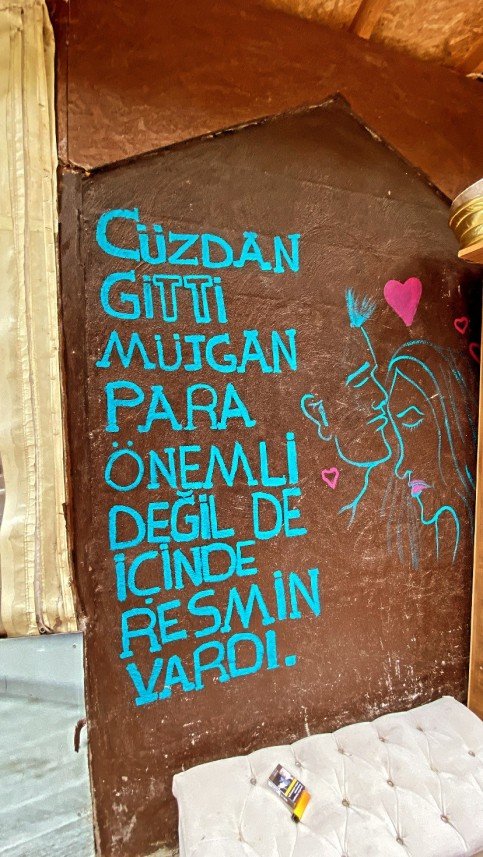 CÜZDAN
GİTTİ
MÜJGAN
PARA
ÖNEMLİ
DEĞİL DE
İÇİNDE
RESMİN
VARDI.